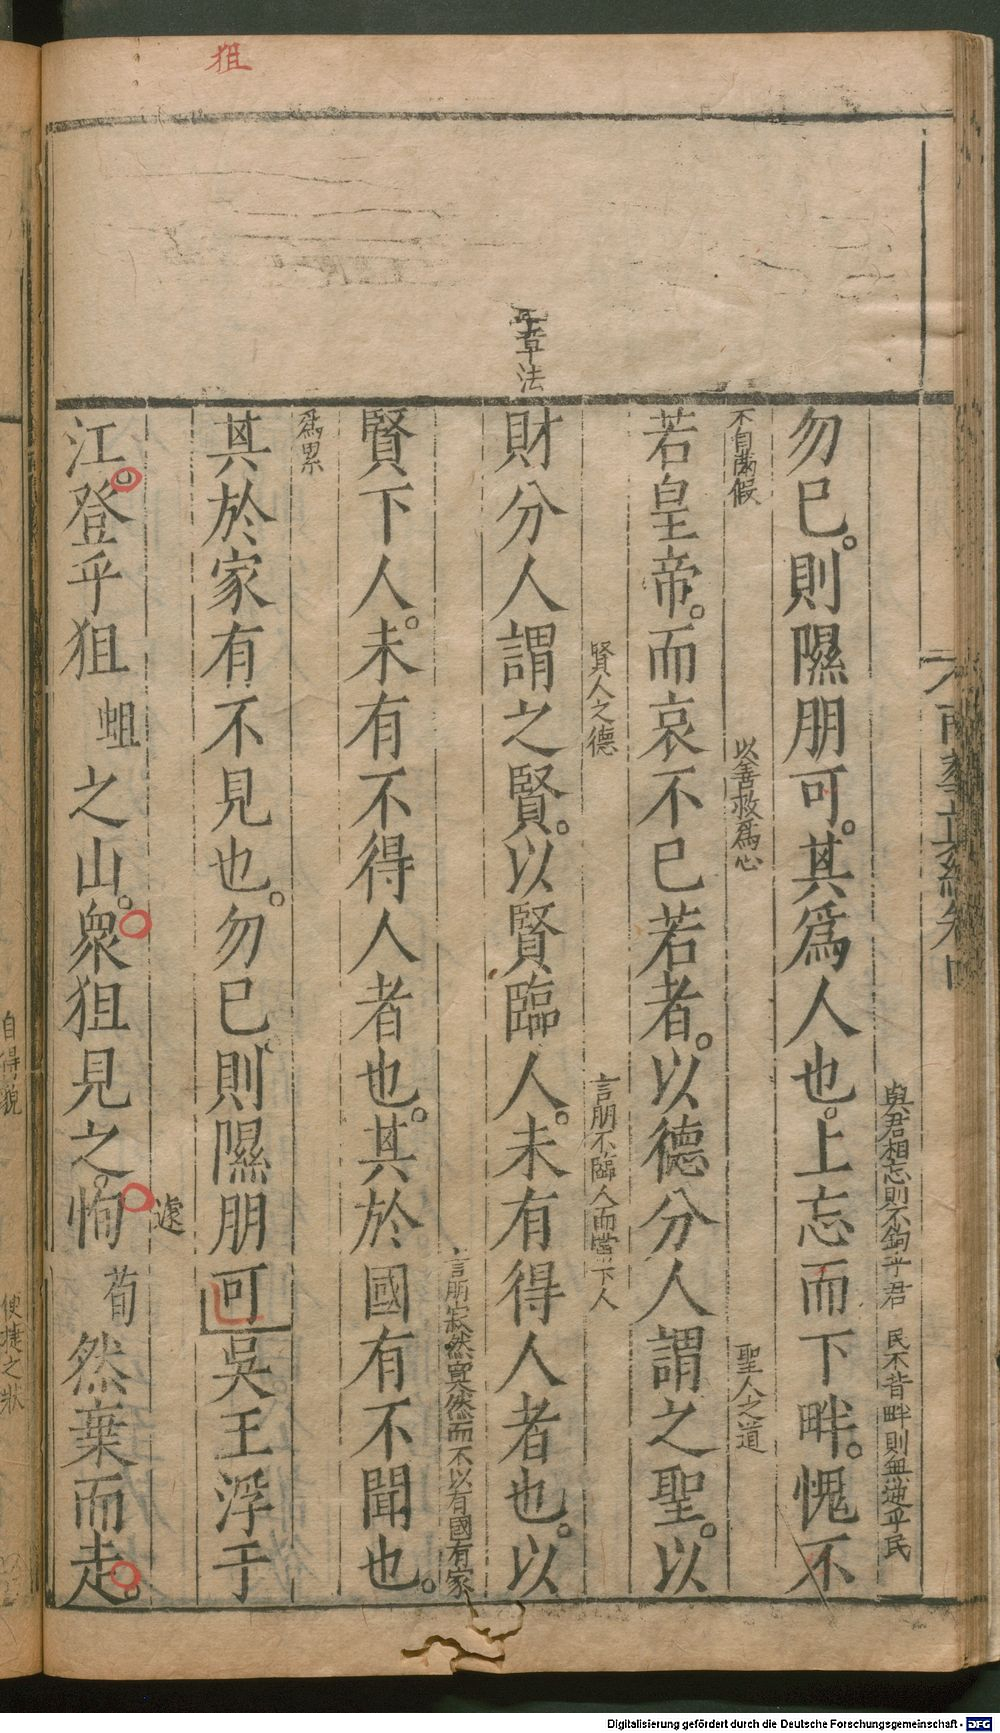 狙
章法
南華真經卷
與君相忘則不鉤乎君 民不背畔則無逆乎民
勿已則隰朋可其爲人也上忘而下畔愧不
不自滿假 以善救爲心 聖人之道
若皇帝而哀不已若者以德分人謂之聖以
賢人之德 言朋不臨人而當下人
財分人謂之賢以賢臨人未有得人者也以
言朋寂然寞然而不以有國有家
賢下人未有不得人者也其於國有不聞也
爲累
其於家有不見也勿已則隰朋可吳王浮于
遽
江登乎狙蛆之山衆狙見之恂荀然棄而走
自得貌 便捷之狀
Digitalisierung gefördert durch die Deutsche Forschungsgemeinschaft - DFG